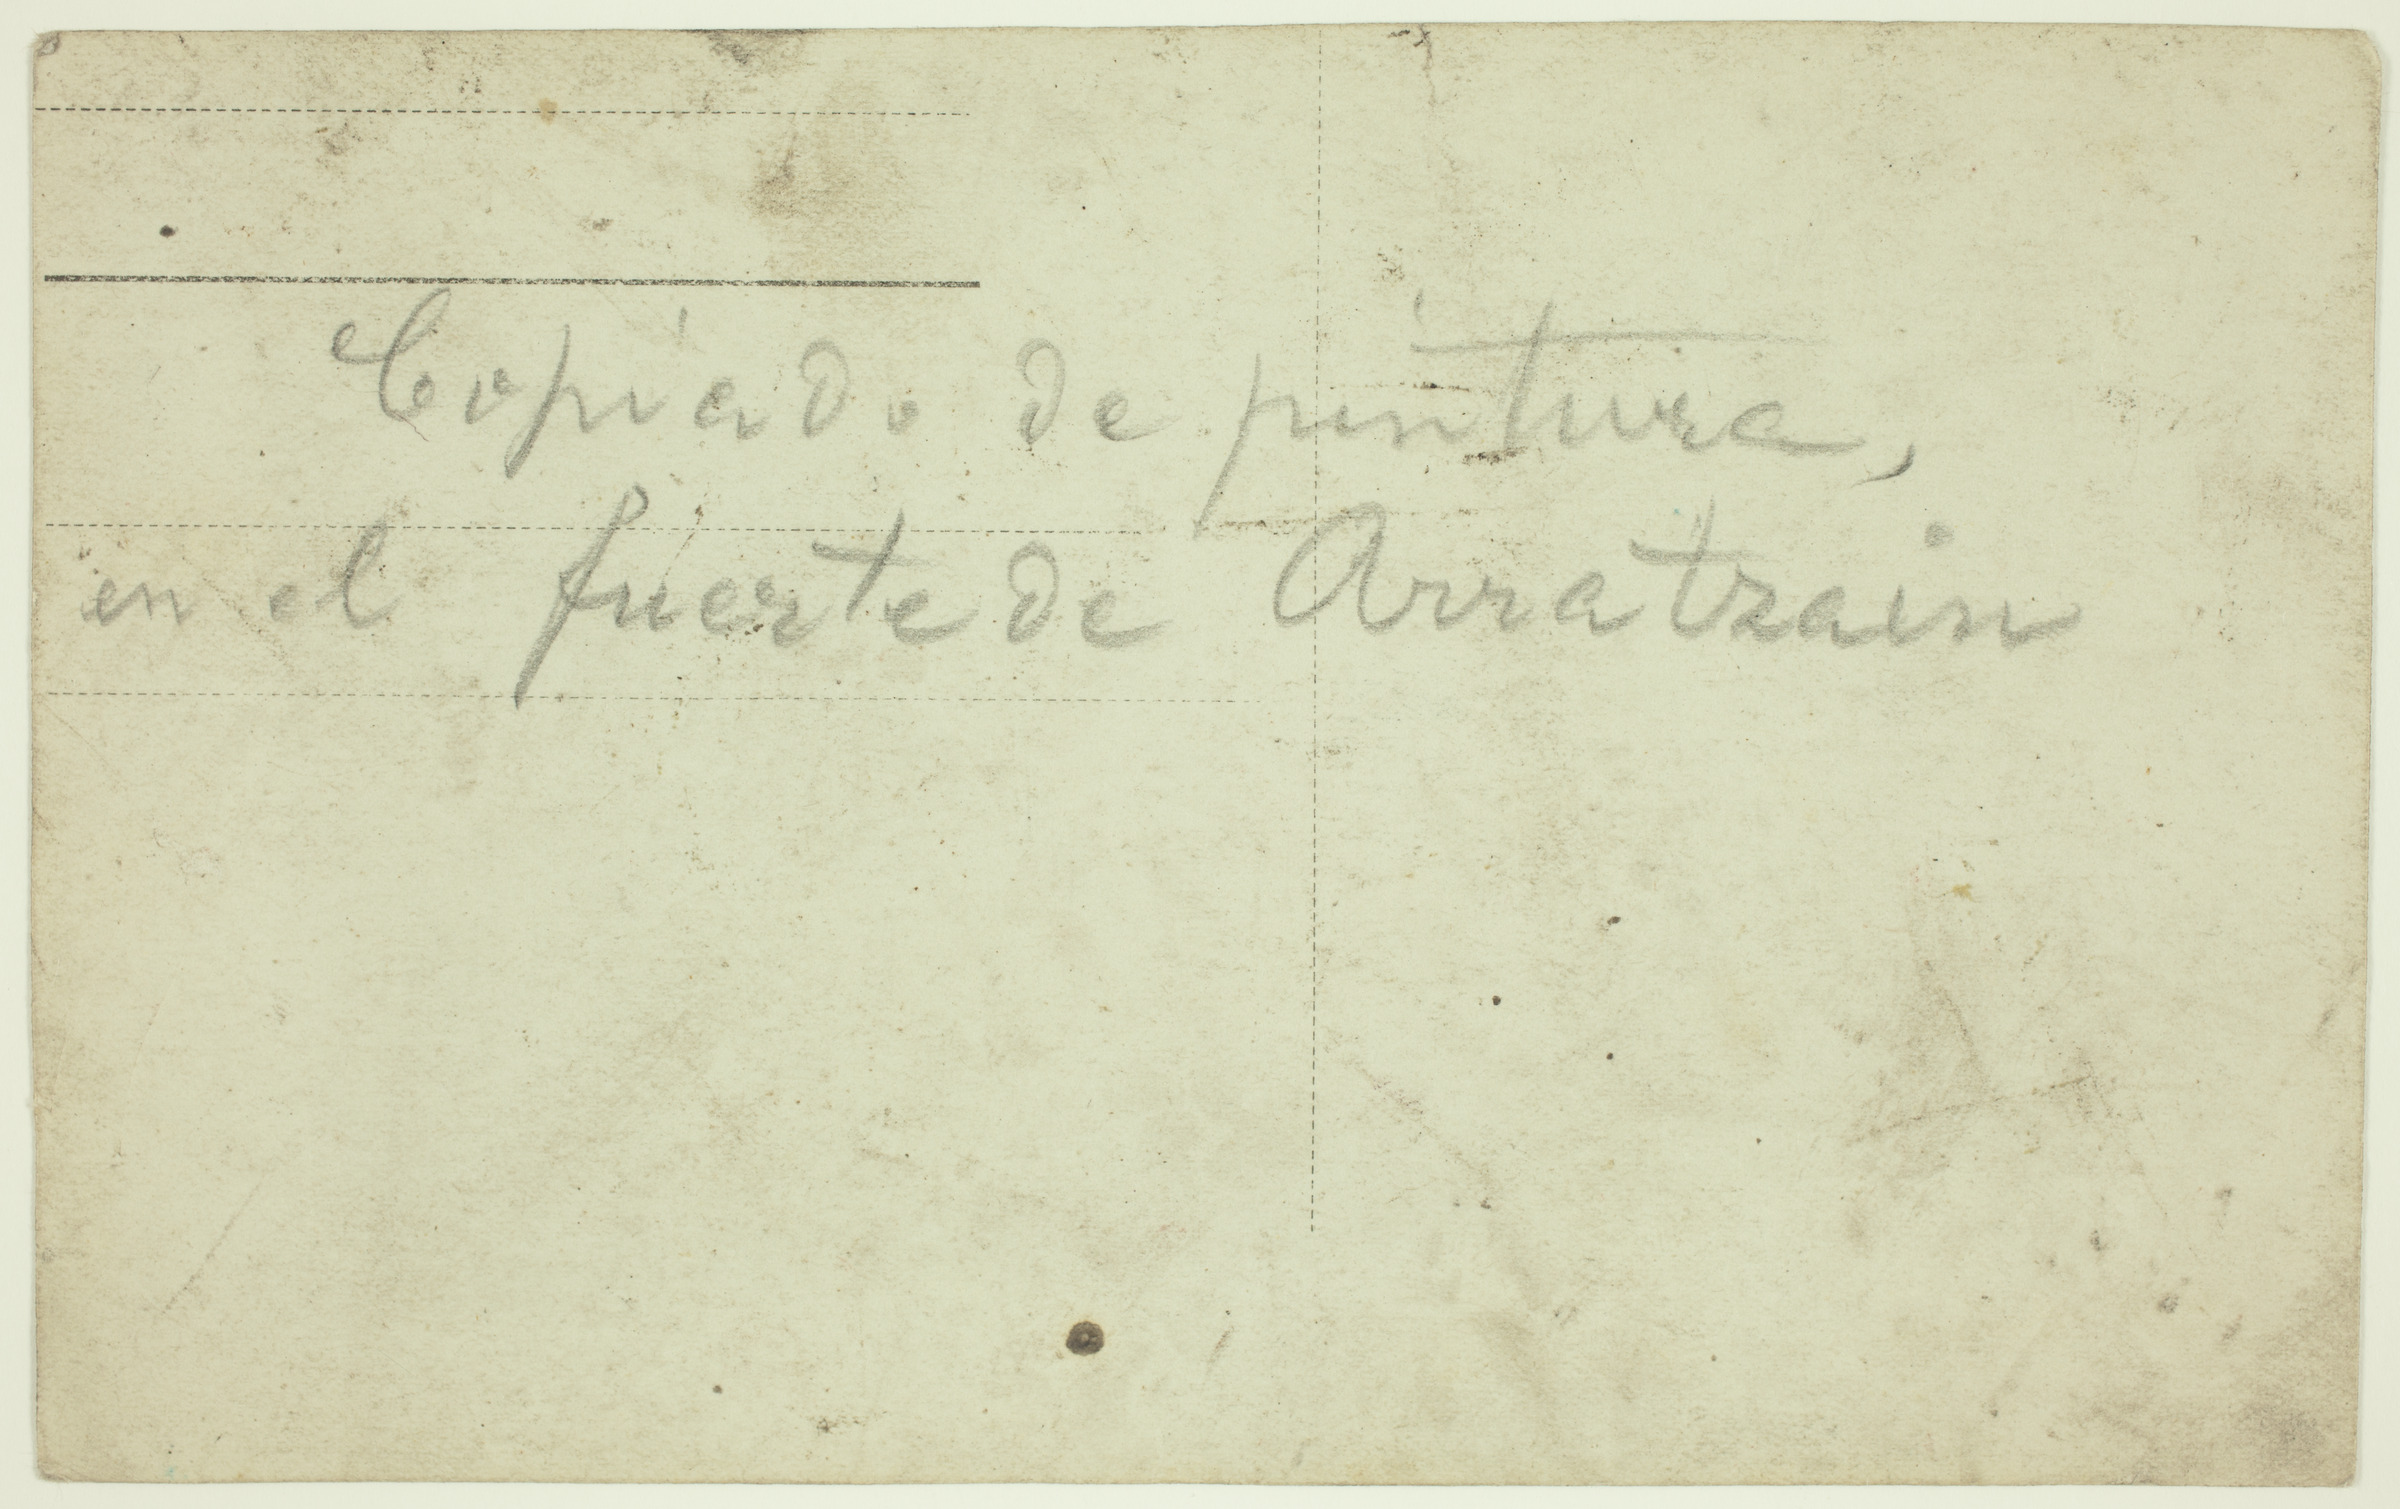 Copiado de pintura,
en el fuerte de Arratzain